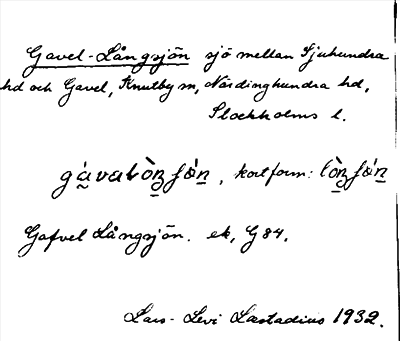 Gavel-Långsjön sjö mellan Sjuhundra
hd och Gavel, Knutby m, Närdinghundra hd,
Stockholms l.
kortform:
Gafvel Långsjön. ek, G 84.
Lars-Levi Læstadius 1932.